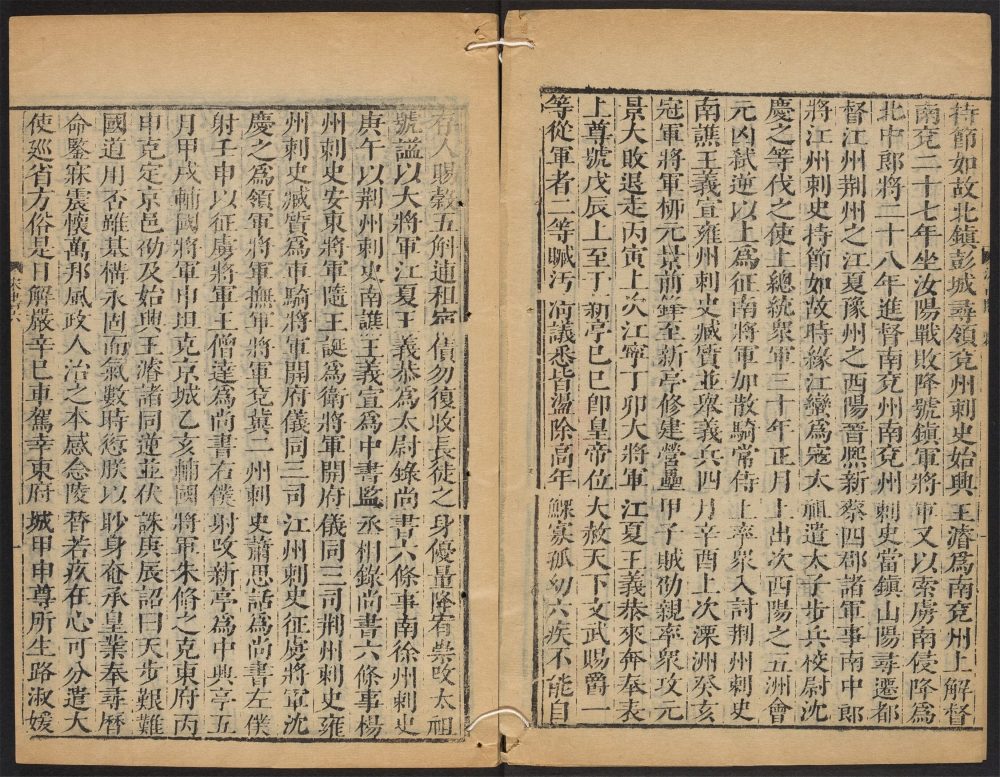 持節如故北鎮彭城尋領兗州刺史始興王濬爲南兗州上解督
南兗二十七年坐汝陽戰敗降號鎮軍將軍又以索虜南侵降爲
北中郎將二十八年進督南兗州南兗州刺史當鎮山陽尋遷都
督江州荆州之江夏豫州之西陽晉熙新蔡四郡諸軍事南中郎
將江州刺史持節如故時緣江蠻爲寇太祖遣太子步兵校尉沈
慶之等伐之使上總統衆軍三十年正月上出次西陽之五洲會
元凶弑逆以上爲征南將軍加散騎常侍上率衆入討荆州刺史
南譙王義宣雍州刺史臧質並舉義兵四月辛酉上次溧洲癸亥
冠軍將軍栁元景前鋒至新亭修建營壘甲子賊劭親率衆攻元
景大敗退走丙寅上次江寧丁卯大將軍江夏王義恭來奔奉表
上尊號戊辰上至于新亭己巳卽皇帝位大赦天下文武賜爵一
等從軍者二等贓汚淸議悉皆盪除高年鰥寡孤幼六疾不能自
存人賜榖五斛逋租宿債勿復收長徒之身優量降宥崇改太祖
號謚以大將軍江夏王義恭爲太尉錄尚書六條事南徐州刺史
庚午以荆州刺史南譙王義宣爲中書監丞相錄尚書六條事楊
州刺史安東將軍隨王誕爲衛將軍開府儀同三司荆州刺史雍
州刺史臧質爲車騎將軍開府儀同三司江州刺史征虜將軍沈
慶之爲領軍將軍撫軍將軍兗冀二州刺史蕭思話爲尚書左僕
射壬申以征虜將軍王僧達爲尚書右僕射改新亭爲中興亭五
月甲戌輔國將軍申坦克京城乙亥輔國將軍朱脩之克東府丙
申克定京邑劭及始興王濬諸同逆並伏誅庚辰詔曰天步艱難
國道用否雖基構永固而氣數時愆朕以眇身奄承皇業奉尋曆
命鑒寐震懷萬邦風政人治之本感念陵替若疚在心可分遣大
使巡省方俗是日解嚴辛巳車駕幸東府城甲申尊所生路淑媛